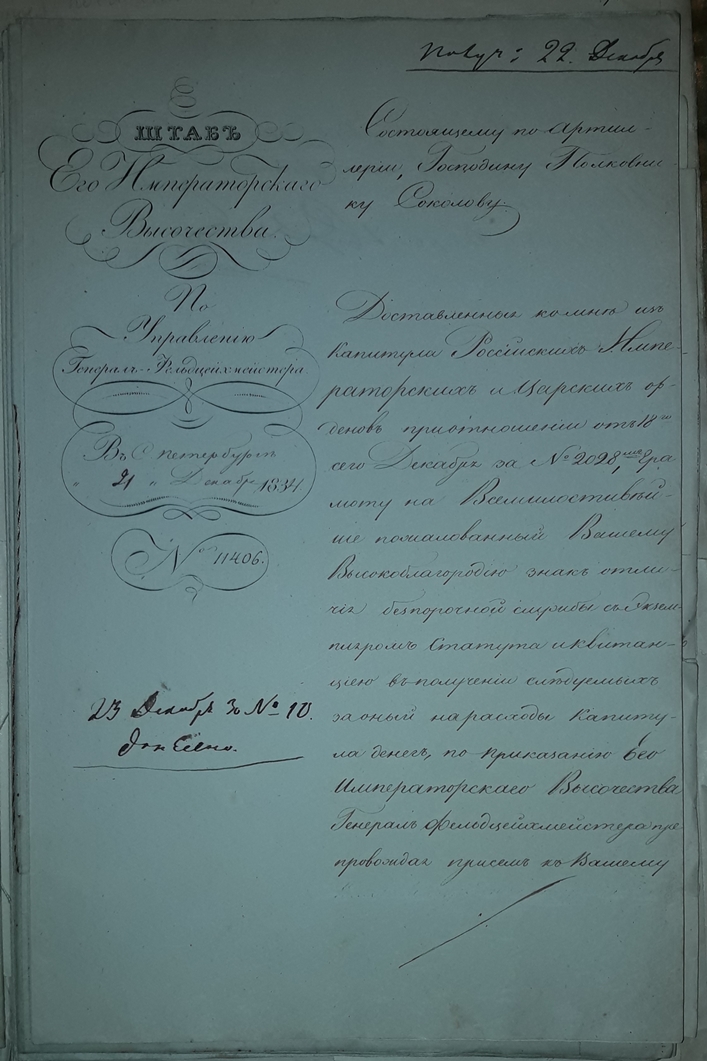 Получ: 22. Декабря
ШТАБЪ
Его Императорскаго
Высочества.
По
Управленію
Генералъ-Фельдцейхмейстера
Въ С. Петербургѣ
" 21 " Декабря 1834.
№ 11406.
23 Декабря за № 10.
донесено.
Состоящему по Артил-
леріи, Господину Полковни-
ку Соколову.
Доставленныя ко мнѣ изъ
Капитула Россійскихъ Импе-
раторскихъ и Царскихъ ор-
деновъ при отношеніи отъ 18го
сего Декабря за № 2028, Гра
моту на Всемилостивѣй-
ше пожалованный Вашему
Высокоблагородію знакъ отли-
чія безпорочной службы съ Экзем-
пляромъ Статута и квитан-
ціею въ полученіи слѣдуемыхъ
за оный на расходы Капиту-
ла денегъ, по приказанію Его
Императорскаго Высочества
Генералъ Фельдцейхмейстера пре
провождая присемъ къ Вашему